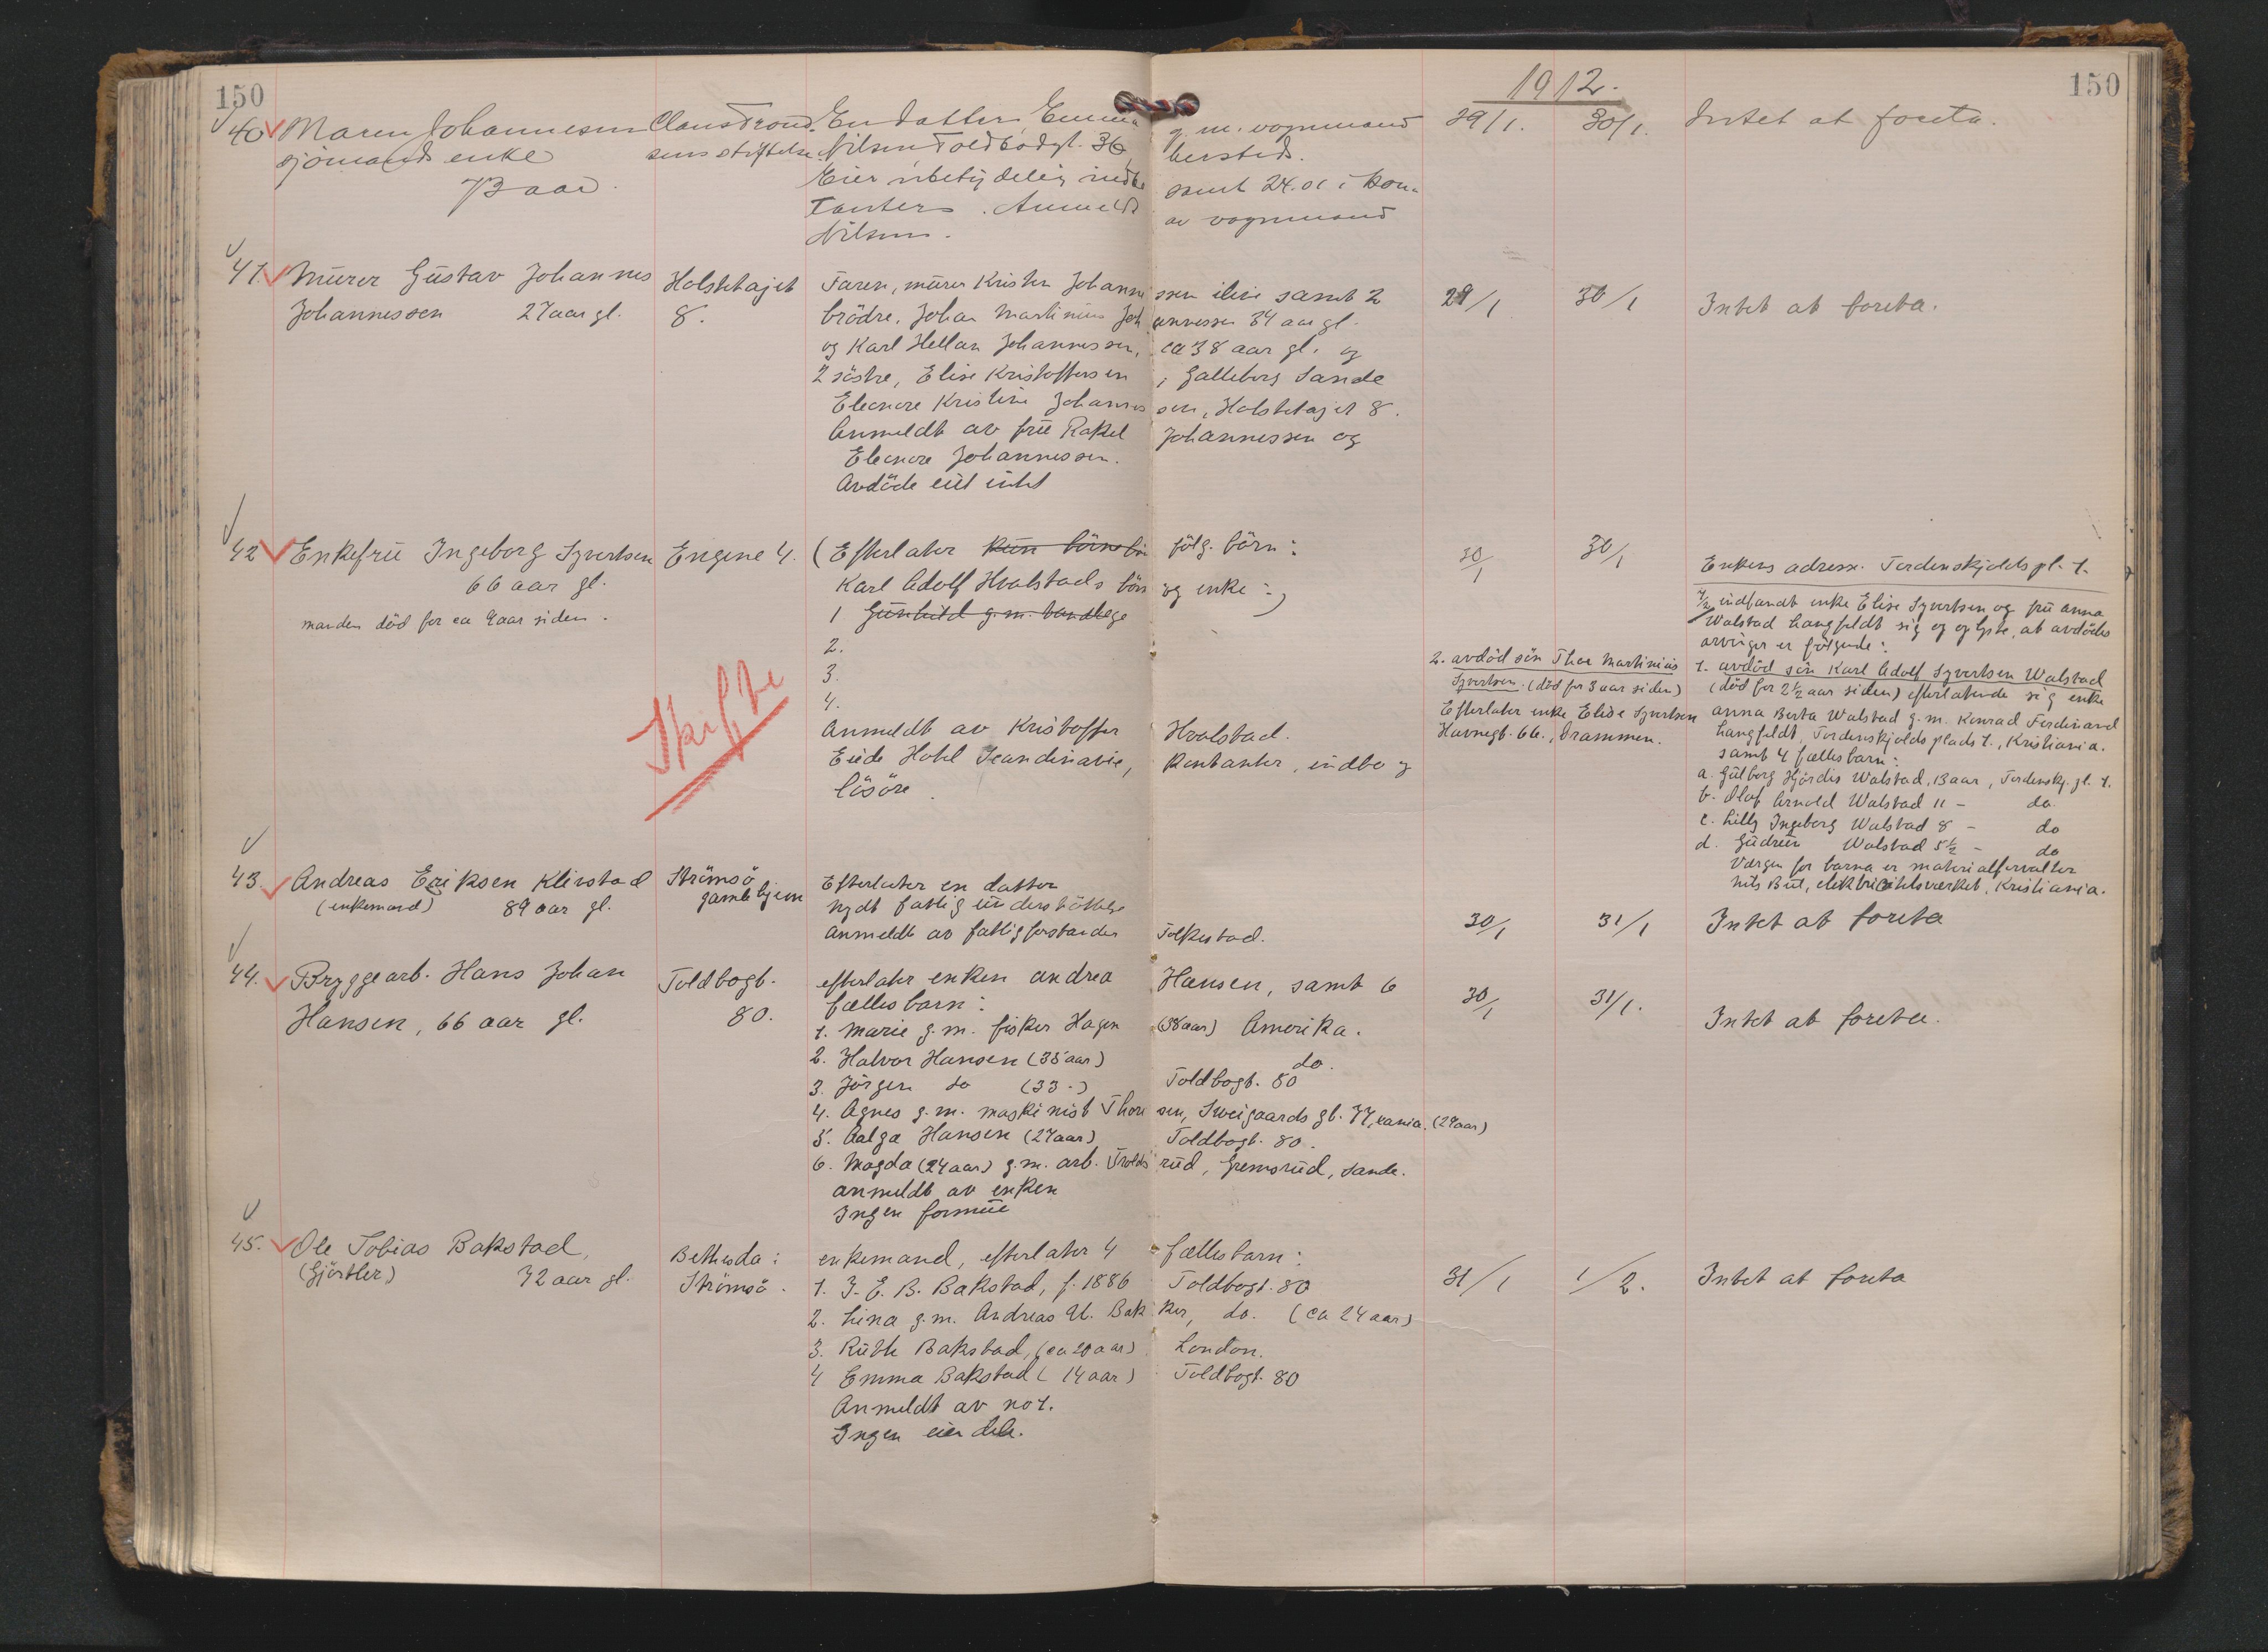 150
1912.
150
40 Maren Johannesen Claus Trond. En datter, Emma g. m. vognmand 29/1. 30/1. Intet at foreta.
sjömands enke sens stiftelse. Nilsen, Toldbodgt. 36, hersteds.
73 aar. Eier ubetydelig indbo samt 24.01 i kon-
tanter. Anmeldt av vognmand
Nilsen.
41. Murer Gustav Johannes Holstetajet Faren, murer Kristen Johannessen ilive samt 2 29/1 30/1 Intet at foreta.
Johannessen 27 aar gl. 8. brödre, Johan Martinius Johannessen 34 aar gl.
og Karl Hellan Johannessen, ca 38 aar gl. og
2 söstre, Elise Kristoffersen i Galleberg Sande
Eleonore Kristine Johannessen, Holstetajet 8.
Anmeldt av frü Rakel Johannessen og
Eleonore Johannessen.
Avdöde eiet intet
42 Enkefrü Ingeborg Syvertsen Engene 4. (Efterlater kun börnebörn fölg. börn: 30/1 30/1
66 aar gl. Karl Adolf Hvalstads börn og enke:)
manden död for ca 9 aar siden. 1 Günhild g. m. bandlege
2.
3.
4.
Anmeldt av Kristoffer Hvalstad.
Eide Hotel Scandinavie, Kontanter, indbo og
lösöre.
Skifte
2. avdöd sön Thor Martinius
Syvertsen. (död for 3 aar siden)
Efterlater enke Elise Syvertsen
Havnegt. 66., Drammen.
Enkens adresse. Tordenskjoldspl. 1.
7/2 indfandt enke Elise Syvertsen og frü Anna
Walstad Langfeldt sig og oplyste, at avdödes
arvinger er fölgende:
1. avdöd sön Karl Adolf Syvertsen Walstad
(död for 2½ aar siden) efterlatende sig enke
Anna Berta Walstad g. m. Konrad Ferdinand
Langfeldt, Tordenskjolds plads 1., Kristiania.
samt 4 fællesbarn:
a. Gülborg Hjördis Walstad, 13 aar, Tordenskj. pl. 1.
b. Olaf Arnold Walstad 11 - do.
c. Lilly Ingeborg Walstad 8 - do
d. Güdrün Walstad 5½ - do
Værgen for barna er materialforvalter
Nils Büe, elektricitetsværket, Kristiania.
43. Andreas Eriksen Klivstad Strömsö Efterlater en datter
(enkemand) 89 aar gl. gamlehjem Nydt fattigünderstöttelse
Anmeldt av fattigforstander Tolkestad. 30/1 31/1 Intet at foreta
44. Bryggearb. Hans Johan Toldbogt. efterlater enken Andrea Hansen, samt 6 30/1 31/1. Intet at foreta.
Hansen, 66 aar gl. 80. fællesbarn:
1. Marie g. m. fisker Hagen (38 aar) Amerika.
2. Halvor Hansen (35 aar) do.
3. Jörgen do (33 -) Toldbogt. 80
4. Agnes g. m. maskinist Thoresen, Sweigaards gt. 77, kania. (29 aar)
5. Aalga Hansen (27 aar) Toldbogt. 80.
6. Magda (24 aar) g. m. arb. Troldsrüd, Gremsrüd, Sande.
anmeldt av enken
Ingen formüe
45. Ole Tobias Bakstad, Bethesda: enkemand, efterlater 4 fællesbarn:
(Gjörtler) 72 aar gl. Strömsö. 1. J. E. B. Bakstad, f. 1886 Toldbogt. 80 31/1 1/2. Intet at foreta
2. Lina g. m. Andreas U. Bakker, do. (ca 24 aar)
3. Rüth Bakstad, (ca 20 aar) London.
4 Emma Bakstad (14 aar) Toldbogt. 80
Anmeldt av no 1.
Ingen eiendele.